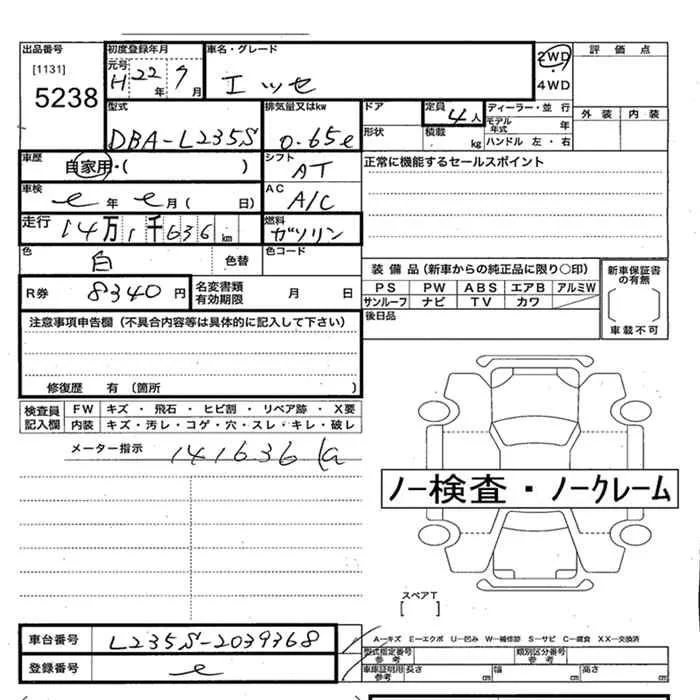 出品番号 初度登録年月 車名・グレード 2WD 評価点
[1131] 元号 H 22年 7月 エッセ ・
5238 4WD 外装 内装
型式 DBA-L235S 排気量又はkw 0.65ℓ ドア 定員 4人 ディーラー・並行
形状 積載 kg モデル年式 年
ハンドル 左・右
車歴 自家用・( ) シフト AT 正常に機能するセールスポイント
車検 年 月 ( 日) AC A/C
走行 14万1千636km 燃料 ガソリン
色 白 色替 色コード
R券 8340円 名変書類有効期限 月 日
装備品(新車からの純正品に限り○印) 新車保証書の有無
PS PW ABS エアB アルミW
サンルーフ ナビ TV カワ
後日品 車載不可
注意事項申告欄(不具合内容等は具体的に記入して下さい)
修復歴 有(箇所 )
検査員記入欄 FW キズ・飛石・ヒビ割・リペア跡・X要
内装 キズ・汚レ・コゲ・穴・スレ・キレ・破レ
メーター指示 141636
ノー検査・ノークレーム
スペアT
[ ]
車台番号 L235S-2039368
登録番号
A―キズ E―エクボ U―凹み W―補修跡 S―サビ C―腐食 XX―交換済
型式指定番号 参考 類別区分番号 参考
車庫証明用 参考 長さ cm 幅 cm 高さ cm